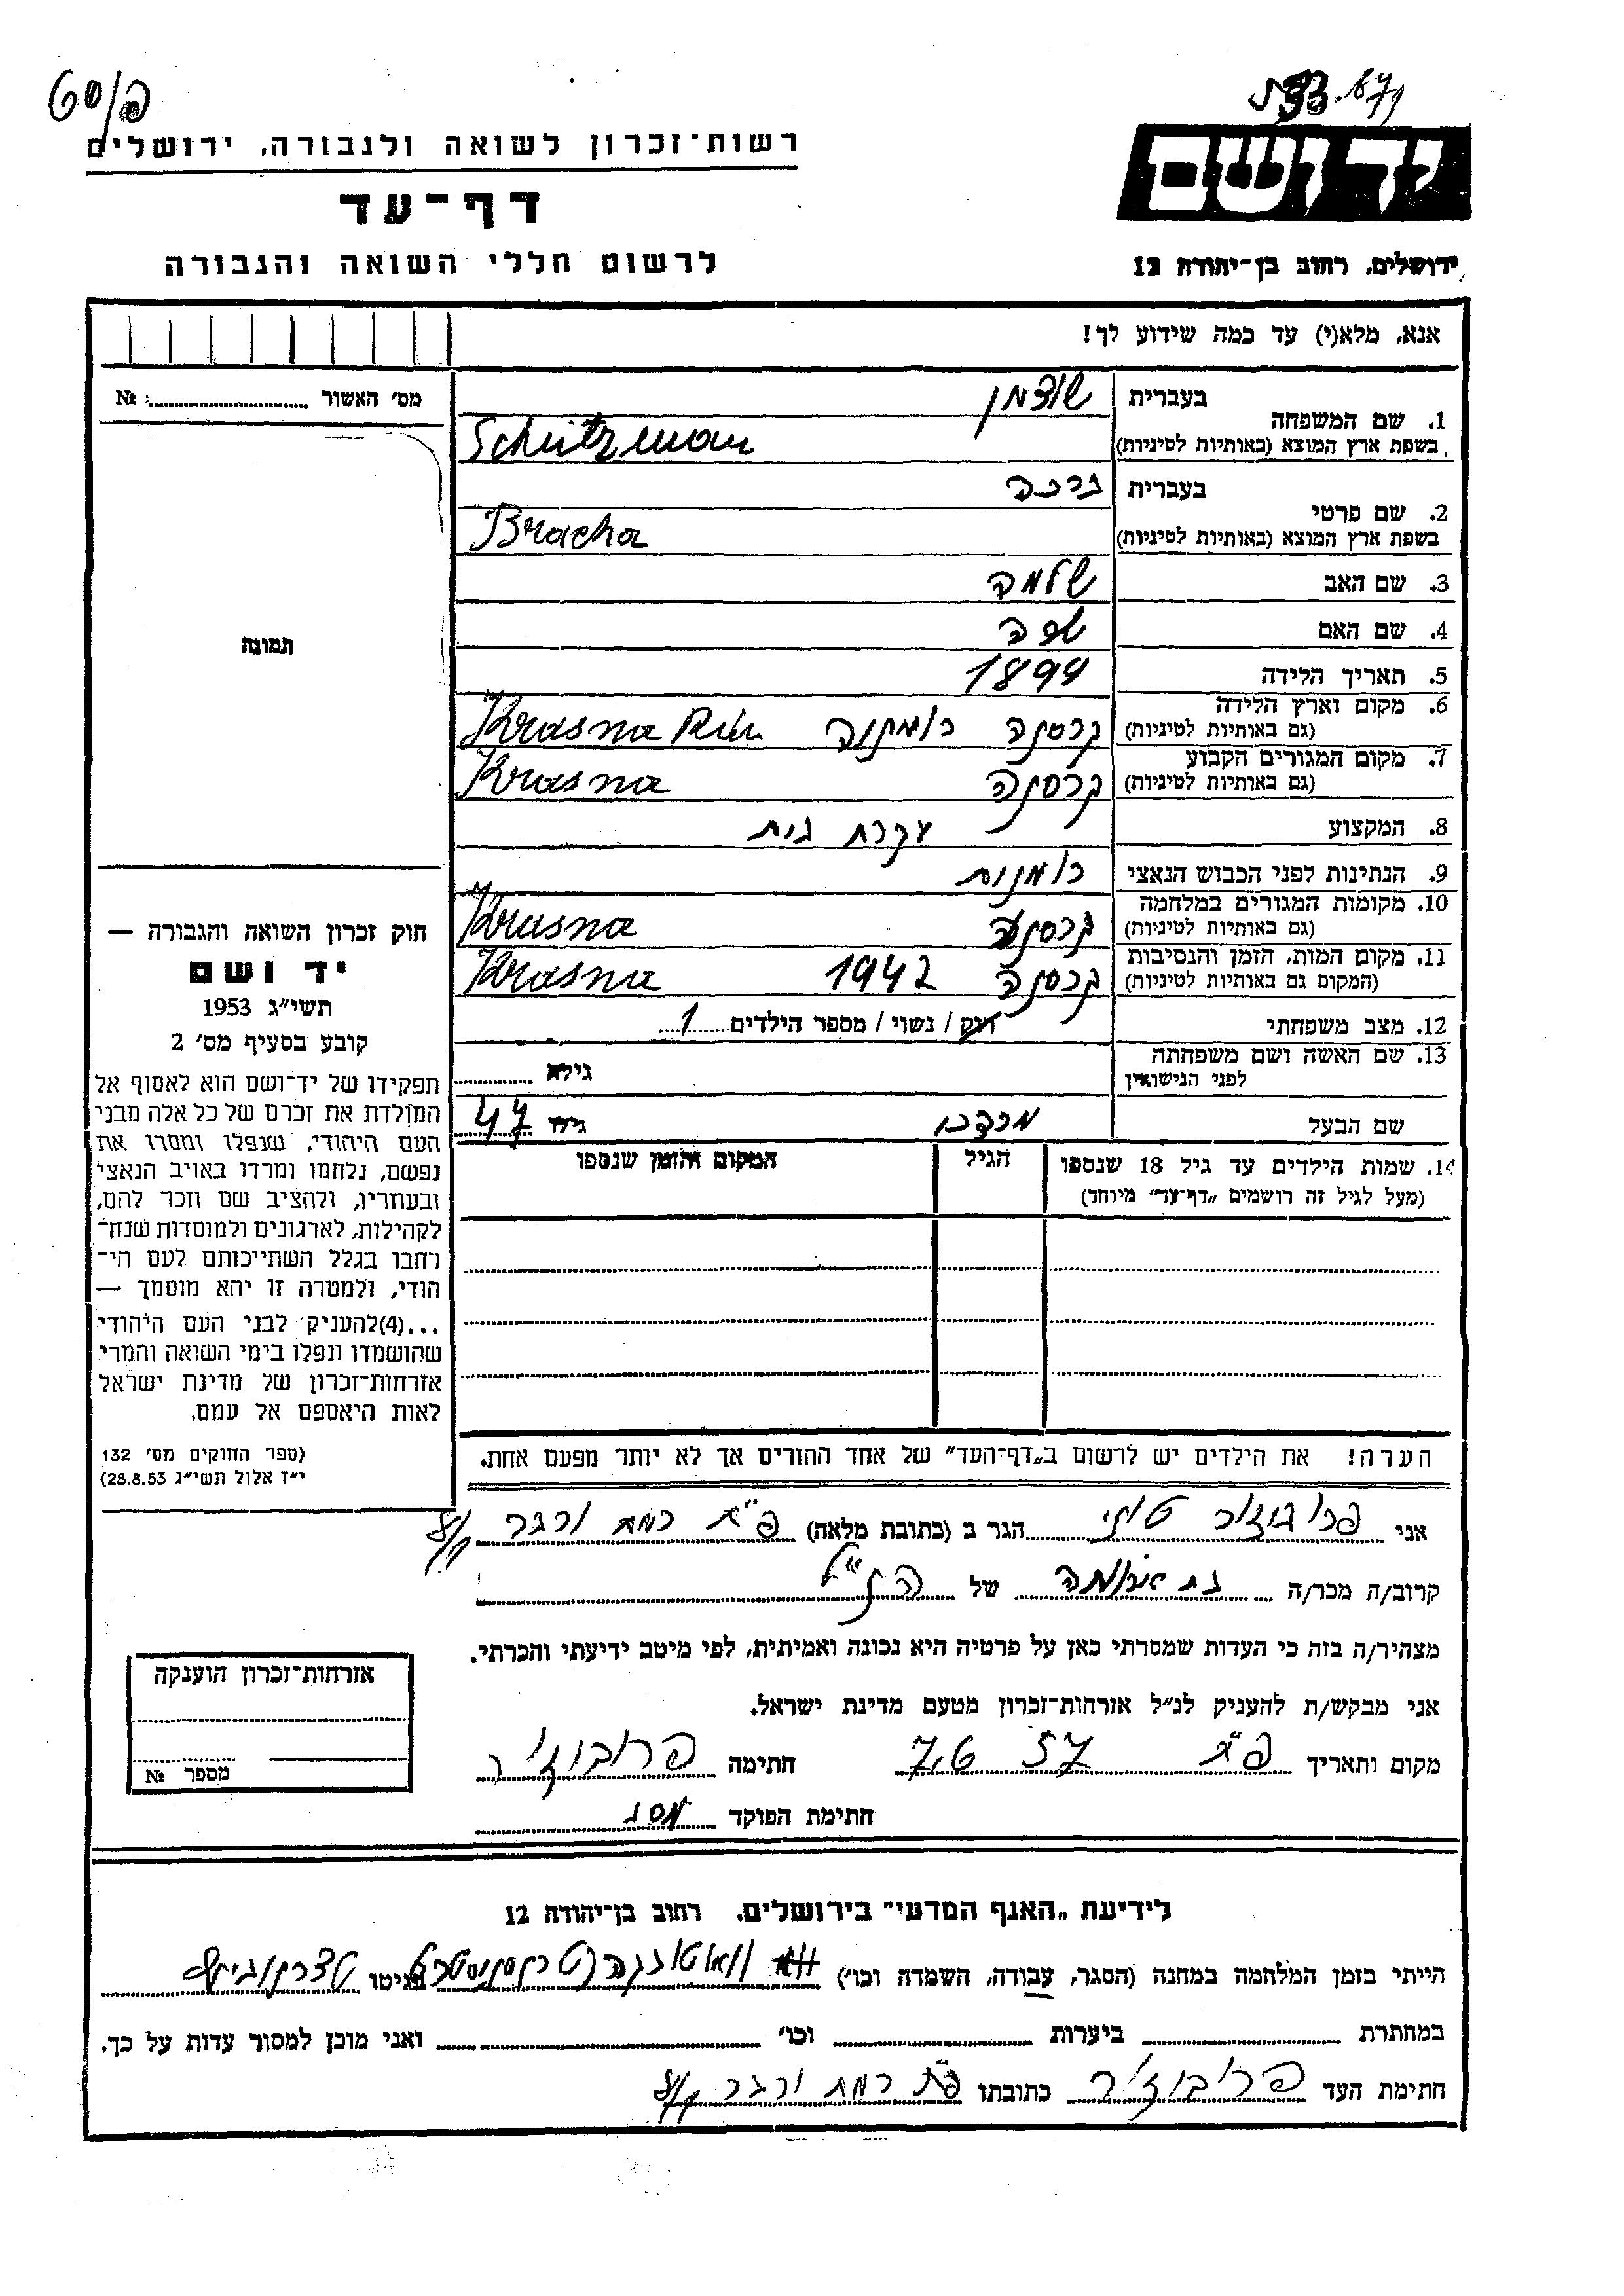 רשות־זכרון לשואה ולגבורה, ירושלים
דף־עד
לרשום חללי השואה והגבורה
יד ושם
ירושלים, רחוב בן־יהודה 12
אנא, מלא(י) עד כמה שידוע לך!
מס׳ האשור № ..........
תמונה
1. שם המשפחה בעברית שוצמן
בשפת ארץ המוצא (באותיות לטיניות) Schützman
2. שם פרטי בעברית ברכה
בשפת ארץ המוצא (באותיות לטיניות) Bracha
3. שם האב שלמה
4. שם האם
5. תאריך הלידה 1894
6. מקום וארץ הלידה (גם באותיות לטיניות) קרסנה רומניה Krasna Rum
7. מקום המגורים הקבוע (גם באותיות לטיניות) קרסנה Krasna
8. המקצוע עקרת בית
9. הנתינות לפני הכבוש הנאצי רומנית
10. מקומות המגורים במלחמה (גם באותיות לטיניות) קרסנה Krasna
11. מקום המות, הזמן והנסיבות (המקום גם באותיות לטיניות) קרסנה 1942 Krasna
12. מצב משפחתי רוק / נשוי / מספר הילדים 1
13. שם האשה ושם משפחתה לפני הנישואין גילא
שם הבעל מרדכי גילו 47
14. שמות הילדים עד גיל 18 שנספו הגיל המקום והזמן שנספו
(מעל לגיל זה רושמים „דף־עד״ מיוחד)
הערה! את הילדים יש לרשום ב„דף־העד״ של אחד ההורים אך לא יותר מפעם אחת.
חוק זכרון השואה והגבורה —
יד ושם
תשי״ג 1953
קובע בסעיף מס׳ 2
תפקידו של יד־ושם הוא לאסוף אל
המולדת את זכרם של כל אלה מבני
העם היהודי, שנפלו ומסרו את
נפשם, נלחמו ומרדו באויב הנאצי
ובעוזריו, ולהציב שם וזכר להם,
לקהילות, לארגונים ולמוסדות שנח־
רחבו בגלל השתייכותם לעם הי־
הודי, ולמטרה זו יהא מוסמך —
...(4)להעניק לבני העם היהודי
שהושמדו ונפלו בימי השואה והמרי
אזרחות־זכרון של מדינת ישראל
לאות היאספם אל עמם.
(ספר החוקים מס׳ 132
י״ז אלול תשי״ג 28.8.53)
אני הגר ב (כתובת מלאה) פ״ת
קרוב/ה מכר/ה של הנ״ל
מצהיר/ה בזה כי העדות שמסרתי כאן על פרטיה היא נכונה ואמיתית, לפי מיטב ידיעתי והכרתי.
אני מבקש/ת להעניק לנ״ל אזרחות־זכרון מטעם מדינת ישראל.
מקום ותאריך פ״ת חתימה
חתימת הפוקד
אזרחות־זכרון הוענקה
מספר №
לידיעת „האגף המדעי״ בירושלים, רחוב בן־יהודה 12
הייתי בזמן המלחמה במחנה (הסגר, עבודה, השמדה וכו׳) בגיטו
במחתרת ביערות וכו׳ ואני מוכן למסור עדות על כך.
חתימת העד כתובתו פ״ת